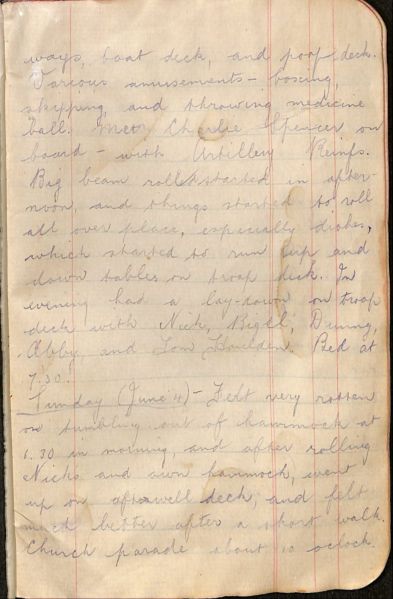 ways, boat deck, and poop deck.
Various amusements - boxing,
skipping, and throwing medicine
ball. Meet Charlie Spencer on
board - with Artillery Reinfs.
Big beam roll started in after-
noon and things started to roll
all over place, especially dishes,
which started to run up and
down tables on troop deck. In
evening had a lay-down on troop
deck with Nick, Bigell, Dunny,
Abby, and Tom. Bed at
7.30.
Sunday (June 4) - Felt very rotten
on tumbling out of hammock at
6.30 in morning, and after rolling
Nicks and own hammock, went
up on aft well deck, and felt
much better after a short walk.
Church parade about 10 oclock.